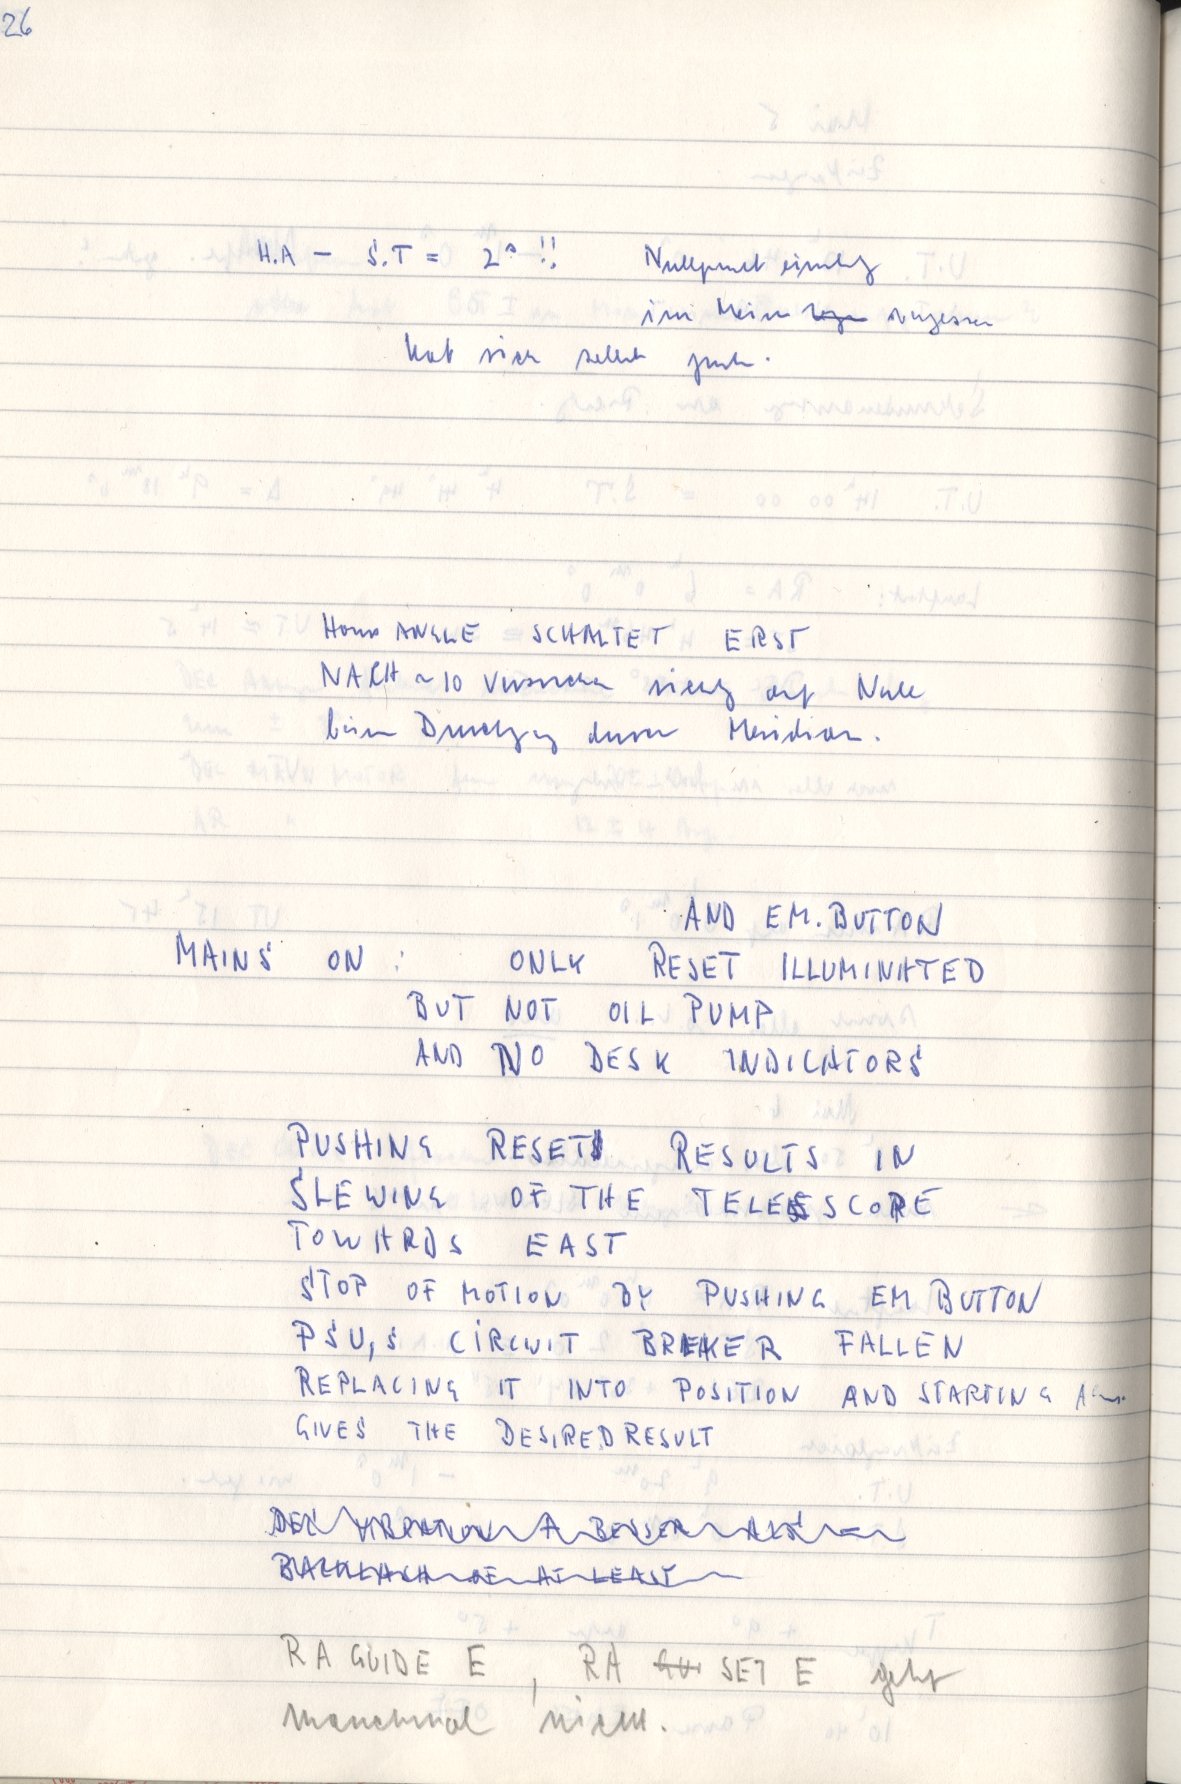 26
H.A - S.T = 2ˢ !! Nullpunkt
im vergessen
hat sich selbst
Hour ANGLE SCHALTET ERST
NACH ~10 Versuchen richtig auf Null
beim Durchgang durch Meridian.
AND EM. BUTTON
MAINS ON : ONLY RESET ILLUMINATED
BUT NOT OIL PUMP
AND NO DESK INDICATORS
PUSHING RESET RESULTS IN
SLEWING OF THE TELESCOPE
TOWARDS EAST
STOP OF MOTION BY PUSHING EM BUTTON
PSU,S CIRCUIT BREAKER FALLEN
REPLACING IT INTO POSITION AND STARTING
GIVES THE DESIRED RESULT
BACKLASH OF AT LEAST
RA GUIDE E, RA SET E geht
manchmal nicht.